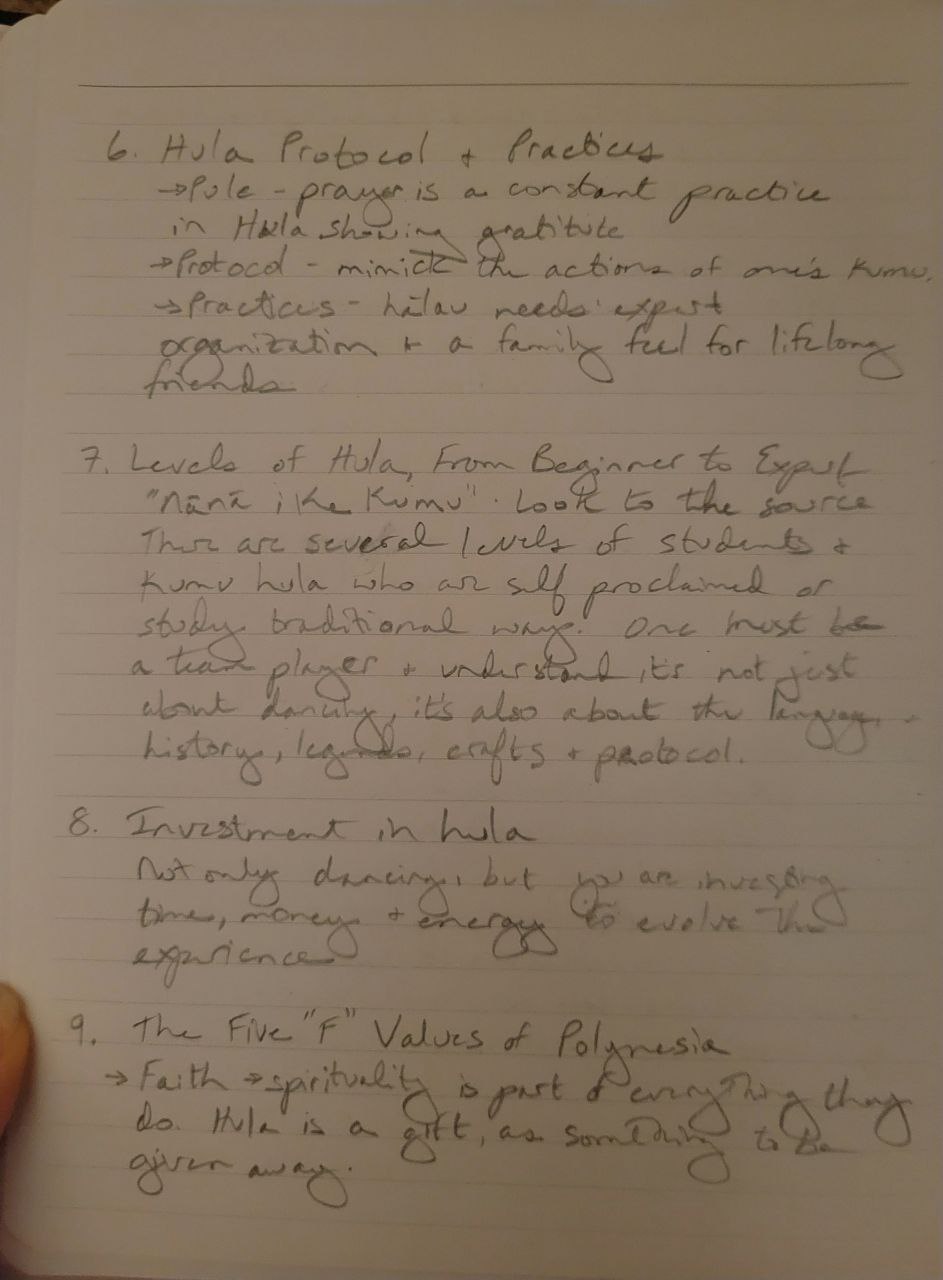 6. Hula Protocol + Practices
→Pule - prayer is a constant practice
in Hula showing gratitute
→Protocol - mimick the actions of one's Kumu.
→Practices - hālau needs expert
organization + a family feel for lifelong
friends
7. Levels of Hula, From Beginner to Expert
"Nānā i Ke Kumu". Look to the source
There are several levels of students +
Kumu hula who are self proclaimed or
study traditional ways. One must be
a team player + understand it's not just
about dancing, it's also about the language,
history, legends, crafts + protocol.
8. Investment in hula
Not only dancing, but you are investing
time, money + energy to evolve the
experience
9. The Five "F" Values of Polynesia
→ Faith → spirituality is part of everything they
do. Hula is a gift, as something to be
given away.